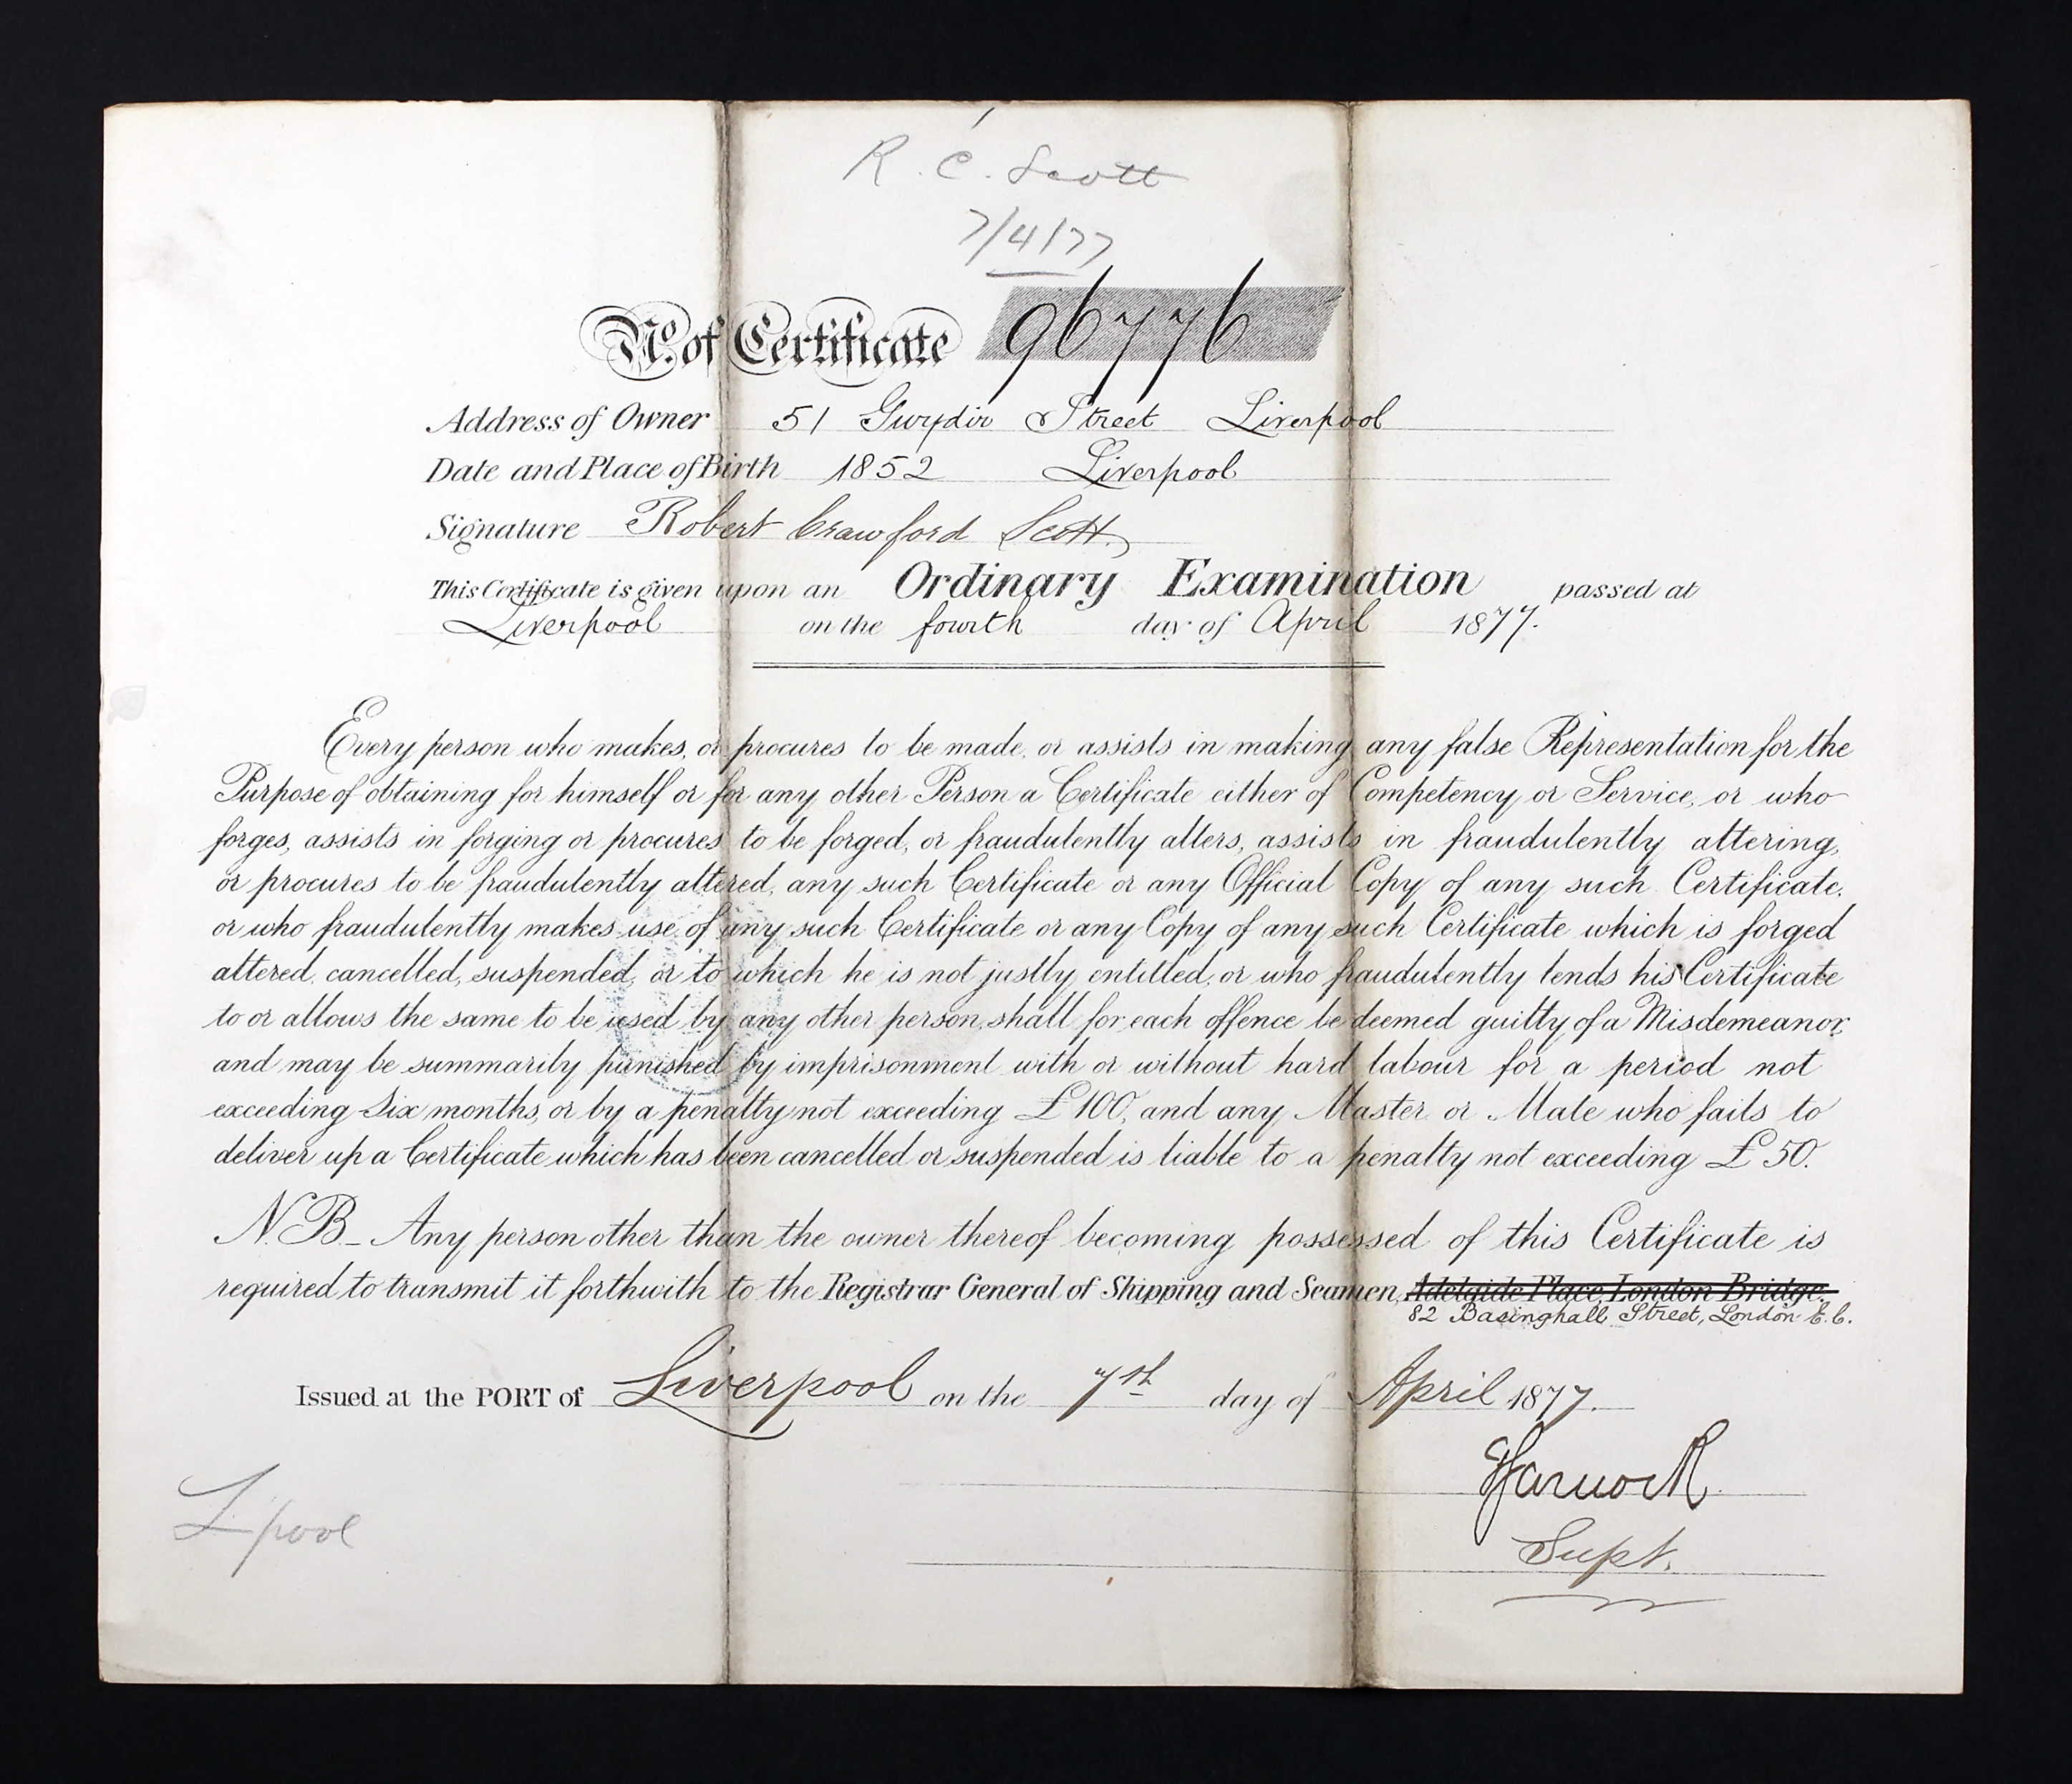 R. C. Scott
7/4/77
No. of Certificate 96776
Address of Owner 51 Gwydir Street Liverpool
Date and Place of Birth 1852 Liverpool
Signature Robert Crawford Scott
This Certificate is given upon an Ordinary Examination passed at
Liverpool on the fourth day of April 1877.
Every person who makes, or procures to be made, or assists in making any false Representation for the
Purpose of obtaining for himself or for any other Person a Certificate either of Competency or Service, or who
forges, assists in forging or procures to be forged, or fraudulently alters, assists in fraudulently altering,
or procures to be fraudulently altered, any such Certificate or any Official Copy of any such Certificate.
or who fraudulently makes use of any such Certificate or any Copy of any such Certificate which is forged
altered, cancelled, suspended, or to which he is not justly entitled, or who fraudulently lends his Certificate
to or allows the same to be used by any other person, shall for each offence be deemed guilty of a Misdemeanor,
and may be summarily punished by imprisonment with or without hard labour for a period not
exceeding Six months, or by a penalty not exceeding £100, and any Master or Mate who fails to
deliver up a Certificate which has been cancelled or suspended is liable to a penalty not exceeding £50.
N.B. – Any person other than the owner thereof becoming possessed of this Certificate is
required to transmit it forthwith to the Registrar General of Shipping and Seamen, Adelaide Place, London Bridge.
82 Basinghall Street, London E.C.
Issued at the PORT of Liverpool on the 7th day of April 1877.
Supt.
L'pool